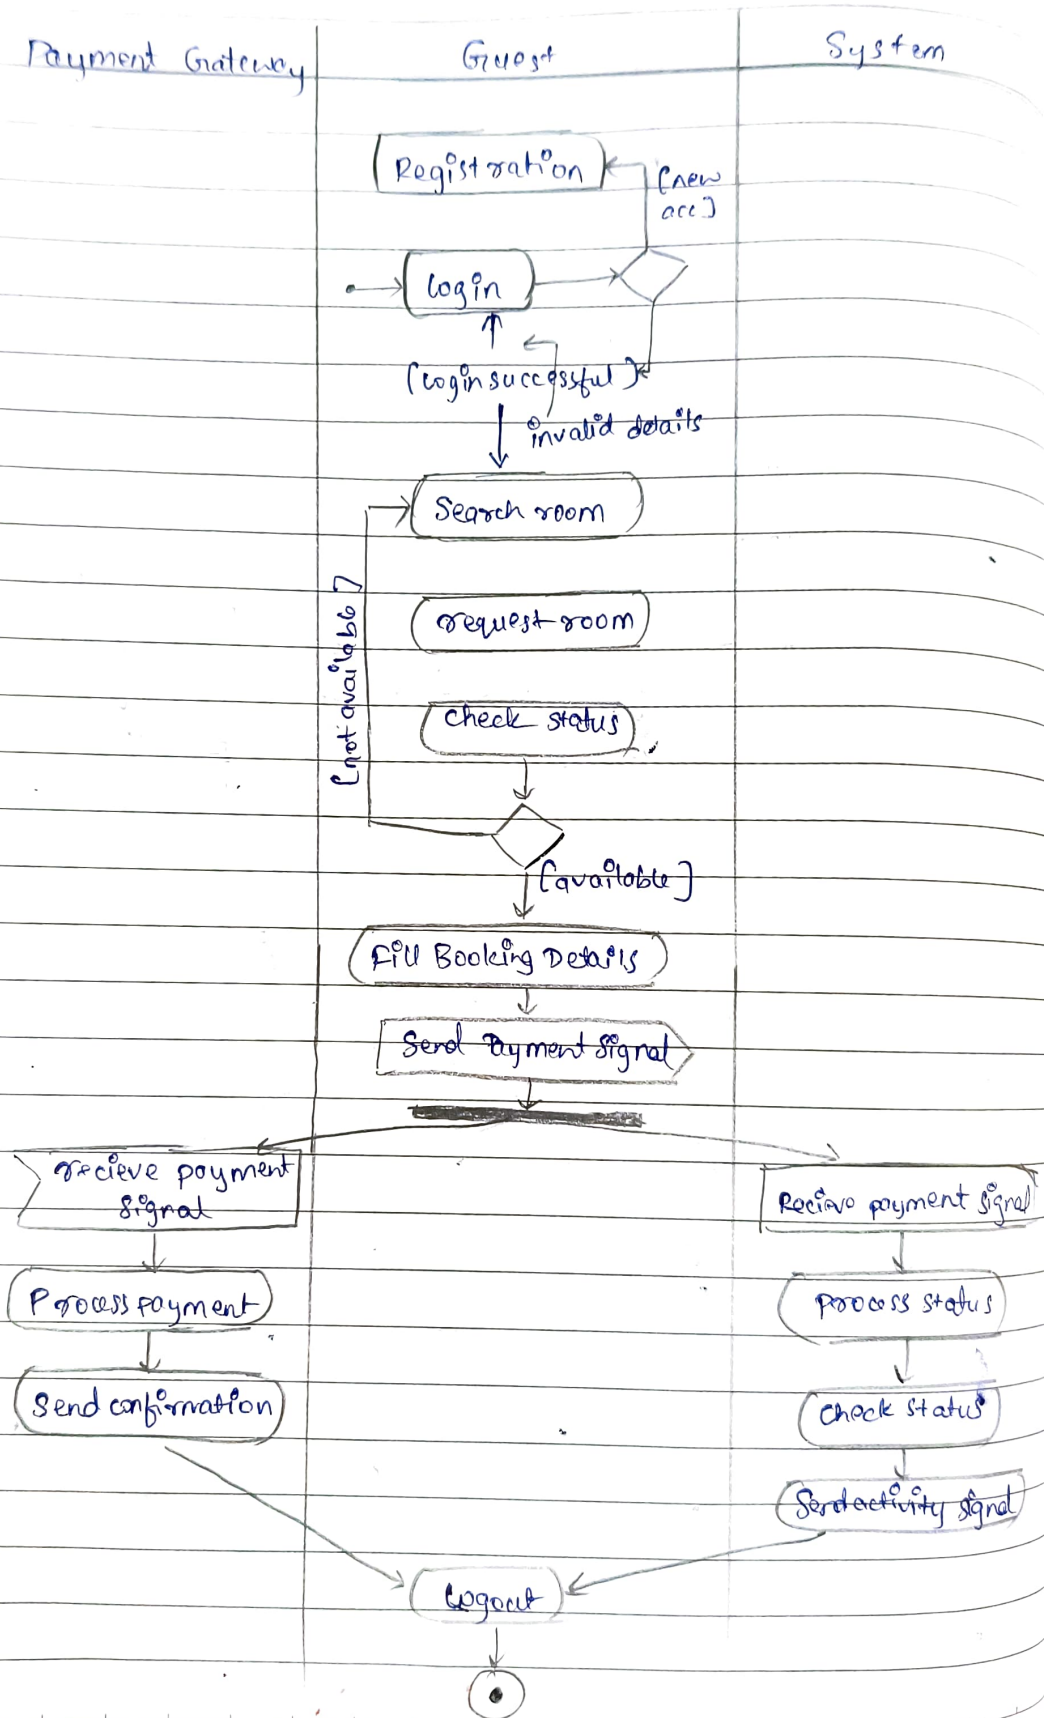 Payment Gateway
Guest
System
Registration
[new
acc]
login
[login successful]
invalid details
Search room
[not available]
request room
check status
[available]
Fill Booking Details
Send Payment Signal
recieve payment
signal
Recieve payment signal
Process payment
process status
Send confirmation
check status
Send activity signal
Logout